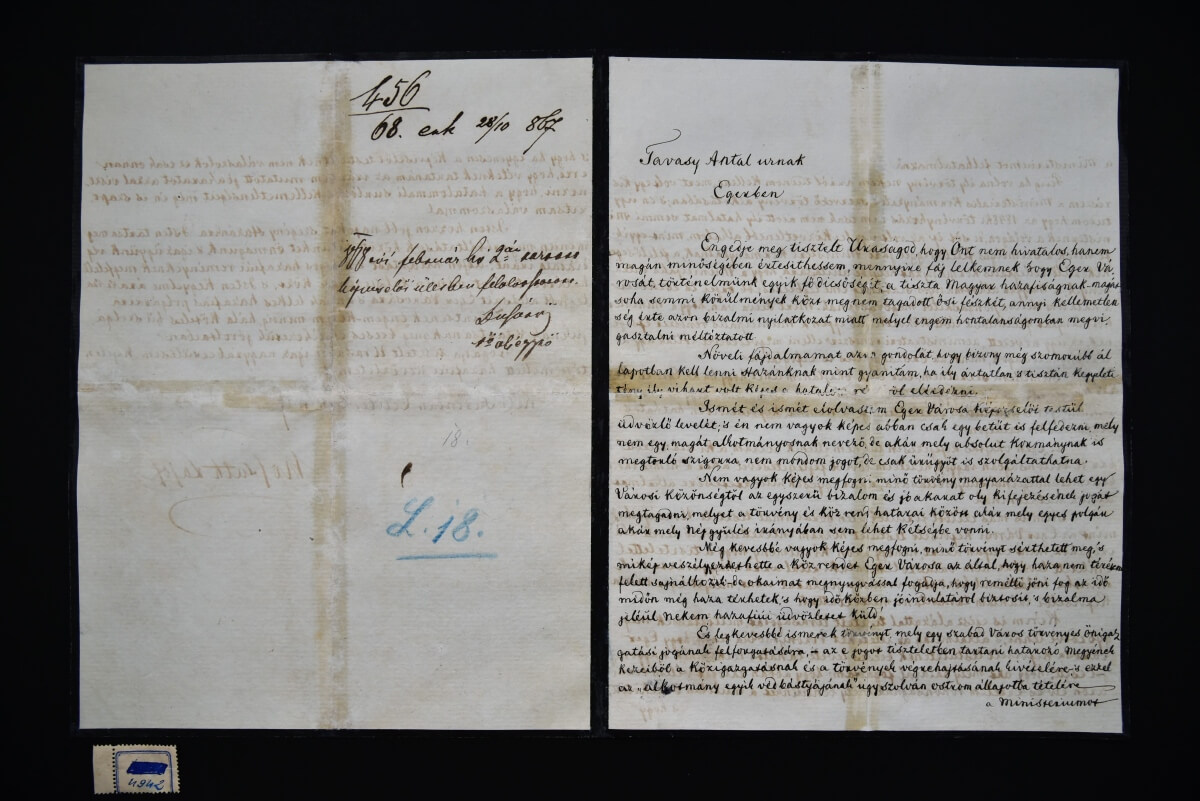 456
68. eln 28/10 867
évi február hó 2án
képviselő ülésben felolvastatott
18.
L. 18.
4942
Tavasy Antal urnak
Egerben
Engedje meg tisztelt Uraságod, hogy Önt nem hivatalos, hanem
magán minőségében értesithessem, mennyire fáj lelkemnek hogy Eger Vá-
rosát, történelmünk egyik fő dicsőségét, a tiszta Magyar hazafiságnak
soha semmi körülmények közt meg nem tagadott ősi fészkét, annyi kellemetlen-
ség érte azon bizalmi nyilatkozat miatt melyel engem hontalanságomban megvi-
gasztalni méltóztatott
Növeli fájdalmamat azon gondolat, hogy bizony még szomorúbb ál-
lapotban kell lenni Hazánknak mint gyanitám, ha ily ártatlan 's tisztán kegyeleti
tény ily vihart volt képes a felidézni.
Ismét és ismét elolvastam Eger Városa Képviselői testül
üdvözlő levelét, 's én nem vagyok képes abban csak egy betűt is felfedezni, mely
nem egy, magát alkotmányosnak nevező, de akár mely absolut Kormánynak is
megtorló szigorra nem mondom jogot, de csak ürügyöt is szolgáltathatna.
Nem vagyok képes megfogni minő törvény magyarázattal lehet egy
Városi közönségtől az egyszerű bizalom és jóakarat oly kifejezésének jogát
megtagadni, melyet a törvény és köz rend határai között akár mely egyes polgár
akár mely népgyülés irányában sem lehet kétségbe vonni.
Még kevesbbé vagyok képes megfogni, minő törvényt sérthetett meg, 's
mikép veszélyeztethette a köz rendet Eger Városa az által, hogy haza nem térésem
felett sajnálkozik – de okaimat megnyugvással fogadja, hogy reméli jöni fog az idő
midőn még haza térhetek, 's hogy idő közben jóindulatáról biztosit, 's bizalma
jeléül nekem hazafiúi üdvözletet küld!
És legkevesbbé ismerek törvényt, mely egy szabad Város törvényes önigaz-
gatási jogának felforgatására, – az e jogot tiszteletben tartani határozó Megyének
kezeiből a közigazgatásnak és a törvények végrehajtásának kivételére, 's ezzel
az „alkotmány egyik védbástyájának” úgy szólván ostrom állapotba tételére
a Ministeriumot